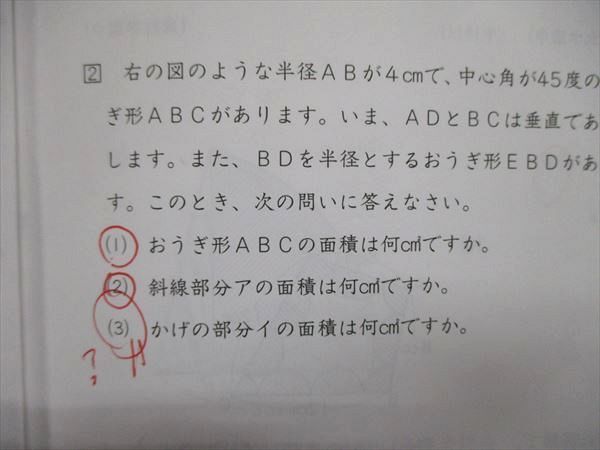 2 右の図のような半径ABが4cmで、中心角が45度の
ぎ形ABCがあります。いま、ADとBCは垂直であ
します。また、BDを半径とするおうぎ形EBDがあ
す。このとき、次の問いに答えなさい。
(1) おうぎ形ABCの面積は何cm²ですか。
(2) 斜線部分アの面積は何cm²ですか。
(3) かげの部分イの面積は何cm²ですか。
?